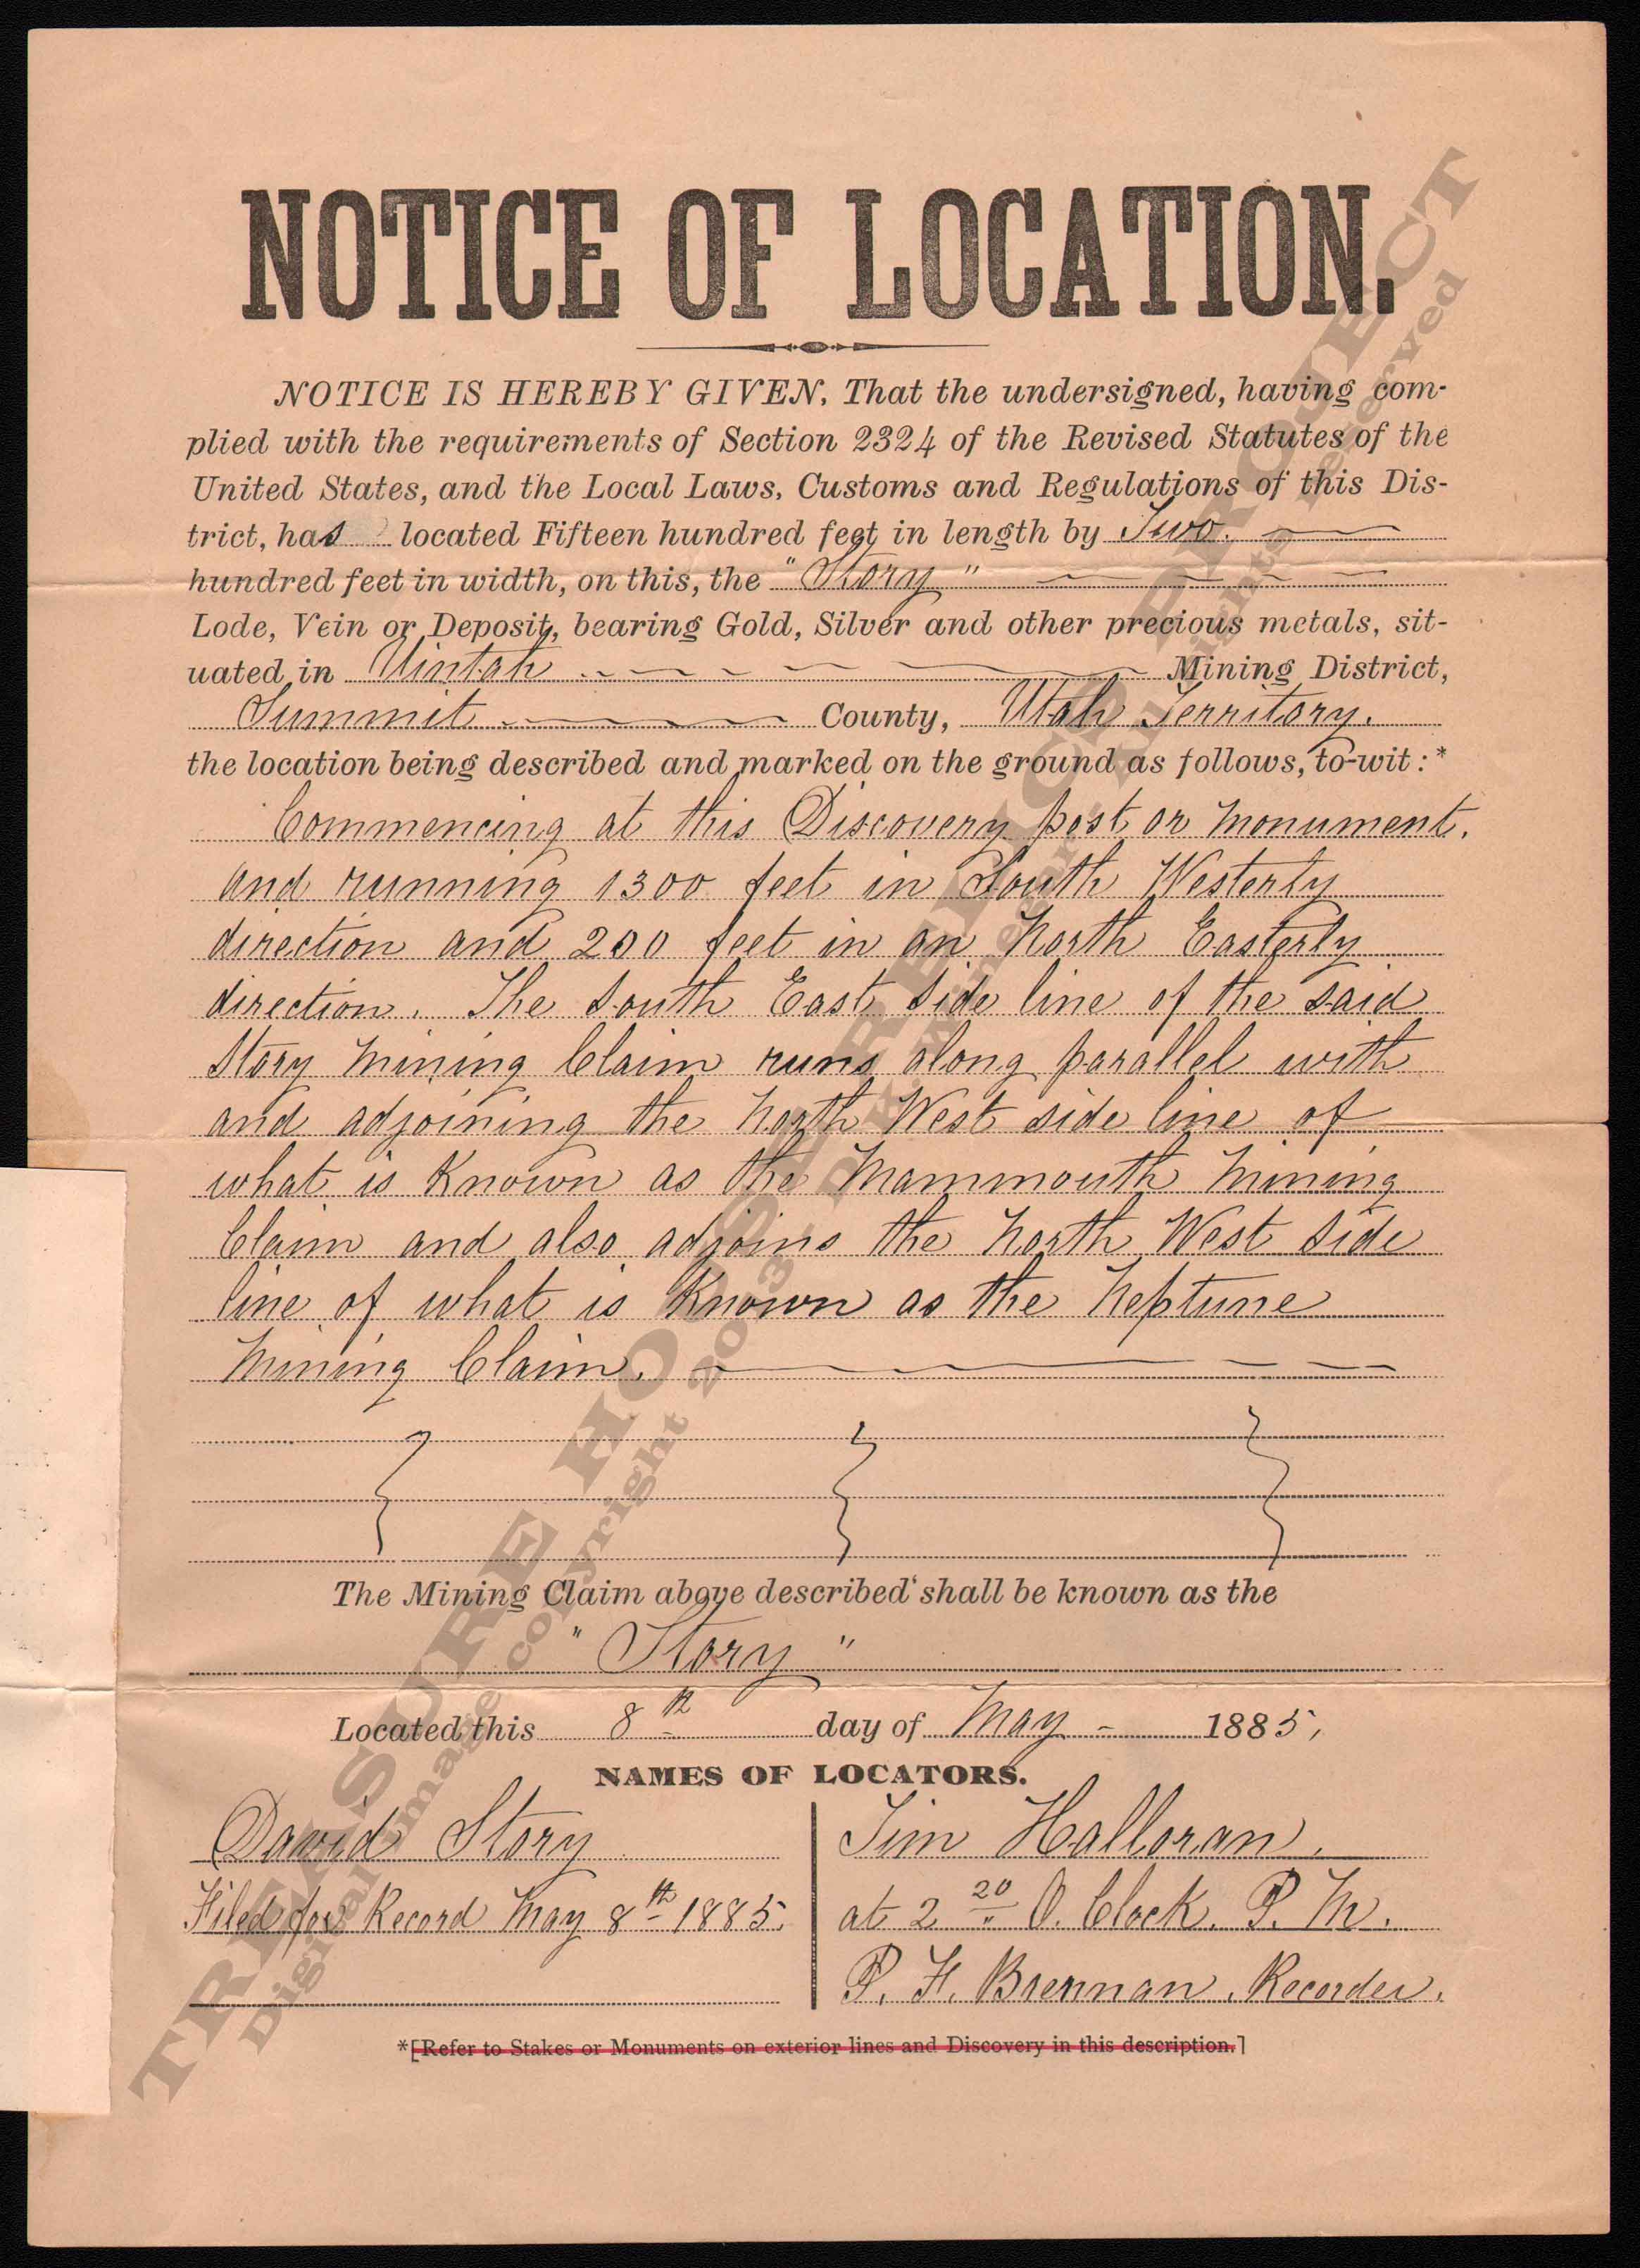 NOTICE OF LOCATION.
NOTICE IS HEREBY GIVEN, That the undersigned, having com-
plied with the requirements of Section 2324 of the Revised Statutes of the
United States, and the Local Laws, Customs and Regulations of this Dis-
trict, has located Fifteen hundred feet in length by Two.
hundred feet in width, on this, the "Story"
Lode, Vein or Deposit, bearing Gold, Silver and other precious metals, sit-
uated in Uintah Mining District,
Summit County, Utah Territory.
the location being described and marked on the ground as follows, to-wit:*
Commencing at this Discovery post or monument.
and running 1300 feet in South Westerly
direction and 200 feet in an North Easterly
direction. The South East Side line of the said
Story Mining Claim runs along parallel with
and adjoining the North West side line of
what is Known as the Mammouth Mining
Claim and also adjoins the North West Side
line of what is Known as the Neptune
Mining Claim.
The Mining Claim above described shall be known as the
"Story"
Located this 8th day of May - 1885,
NAMES OF LOCATORS.
David Story
Filed for Record May 8th 1885.
Tim Halloran.
at 2 20 O. Clock. P. M.
P. F. Brennan, Recorder.
*[Refer to Stakes or Monuments on exterior lines and Discovery in this description.]
TREASURE HOUSE RELICS PROJECT